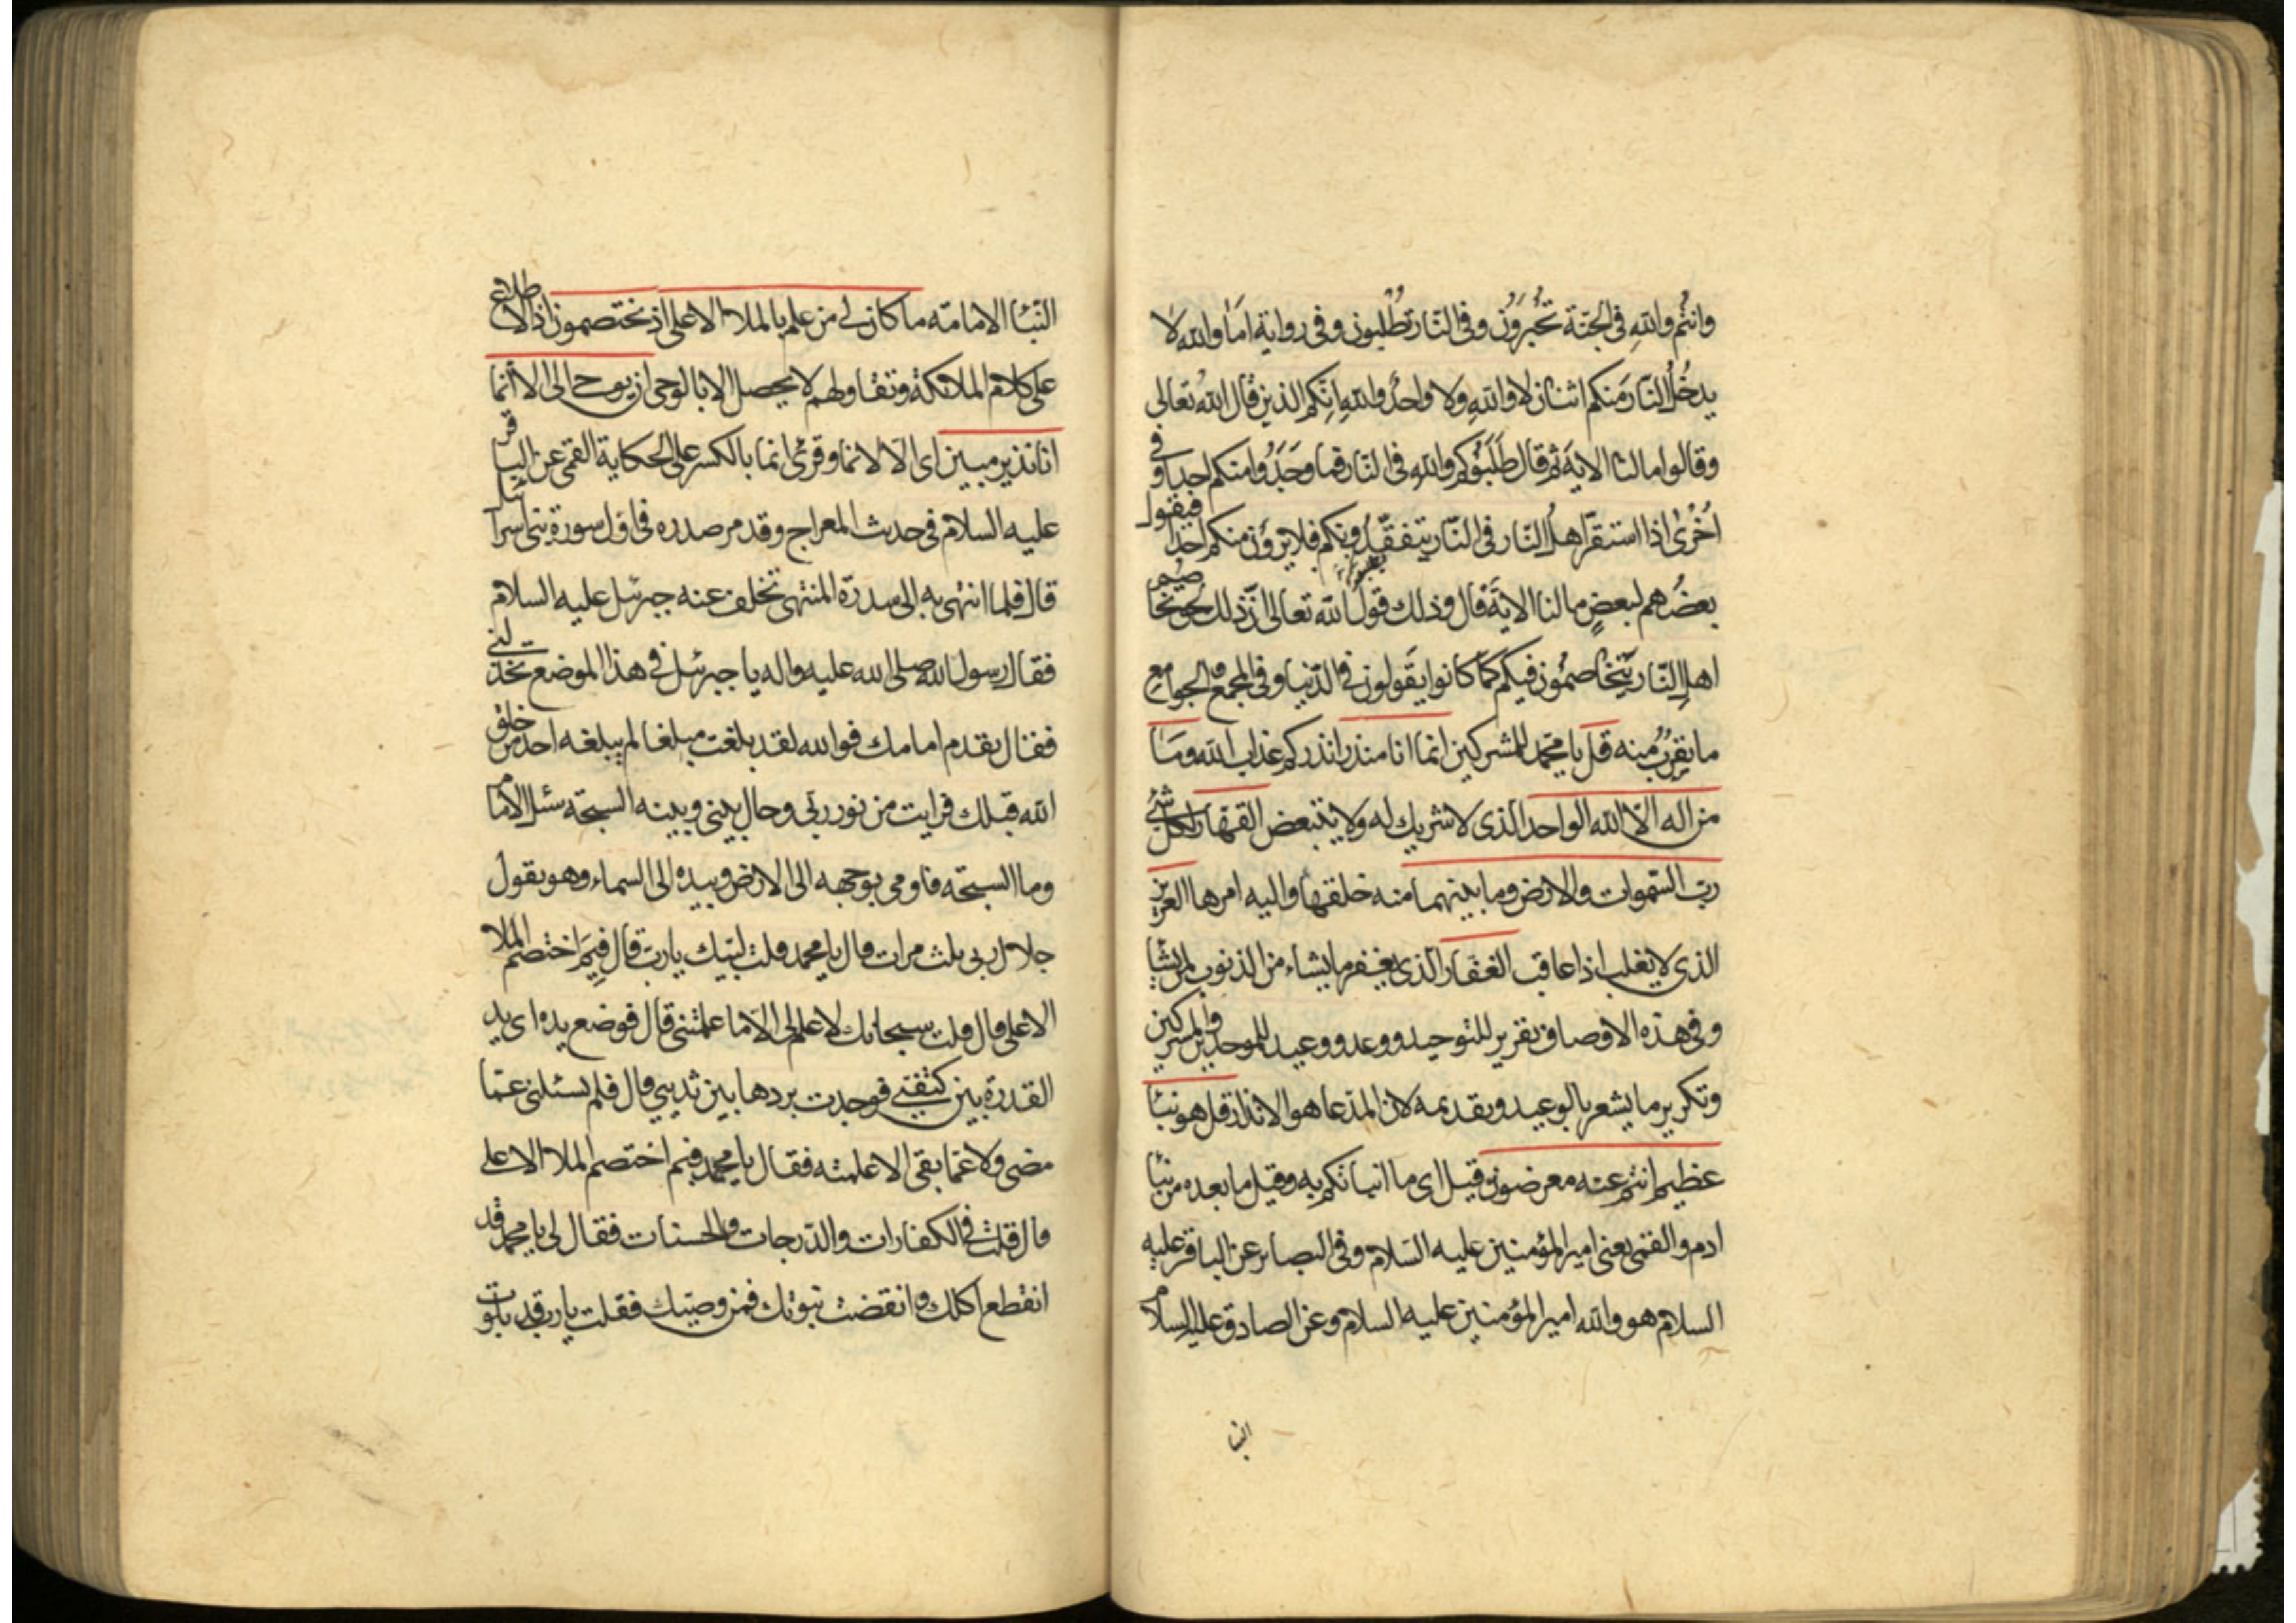 وانتم والله في الجنة تحبرون وفي النار تطلبون وفي رواية اما والله لا
يدخل النار منكم اثنان لا والله ولا واحد والله انكم الذين قال الله تعالى
وقالوا ما لنا الاية ثم قال طلبوكم والله في النار فما وجدوا منكم احدا وفي
اخرى اذا استقر اهل النار في النار يتفقدونكم فلا يرون منكم احدا فيقول
بعضهم لبعض ما لنا الاية قال وذلك قول الله تعالى ان ذلك لحق تخاصم
اهل النار يتخاصمون فيكم كما كانوا يقولون في الدنيا وفي المجمع والجوامع
ما يقرب منه قل يا محمد للمشركين انما انا منذر انذركم عذاب الله وما
من اله الا الله الواحد الذي لا شريك له ولا يتبعض القهار لكل شئ
رب السموات والارض وما بينهما منه خلقها واليه امرها العزيز
الذي لا يغلب اذا عاقب الغفار الذي يغفر ما يشاء من الذنوب لمن يشاء
وفي هذه الاوصاف تقرير للتوحيد ووعد ووعيد للموحدين والمشركين
وتكرير ما يشعر بالوعيد وتقديمه لان المدعا هو الانذار قل هو نبأ
عظيم انتم عنه معرضون قيل اى ما انبأتكم به وقيل ما بعده من نبأ
ادم والقمى يعنى امير المؤمنين عليه السلام وفي البصاير عن الباقر عليه
السلام هو والله امير المؤمنين عليه السلام وعن الصادق عليه السلام
النبا
النبأ الامامة ما كان لي من علم بالملأ الاعلى اذ يختصمون اذ الاطلاع
على كلام الملائكة وتقاولهم لا يحصل الا بالوحى ان يوحى الى الا انما
انا نذير مبين اى الا لانما وقرئ انما بالكسر على الحكاية القمى عن الباقر
عليه السلام في حديث المعراج وقد مر صدره في اول سورة بنى اسرائيل
قال فلما انتهى به الى سدرة المنتهى تخلف عنه جبرئيل عليه السلام
فقال رسول الله صلى الله عليه واله يا جبرئيل في هذا الموضع تخذلنى
فقال تقدم امامك فوالله لقد بلغت مبلغا لم يبلغه احد من خلق
الله قبلك فرايت من نور ربي وحال بينى وبينه السبحة سئل الامام
وما السبحة فاومى بوجهه الى الارض وبيده الى السماء وهو يقول
جلال ربى ثلث مرات قال يا محمد قلت لبيك يا رب قال فيم اختصم الملأ
الاعلى قال قلت سبحانك لا علم لى الا ما علمتنى قال فوضع يده اى يد
القدرة بين كتفى فوجدت بردها بين ثديي قال فلم يسئلنى عما
مضى ولا عما بقى الا علمته فقال يا محمد فيم اختصم الملأ الاعلى
قال قلت في الكفارات والدرجات والحسنات فقال لى يا محمد قد
انقطع اكلك وانقضت نبوتك فمن وصيك فقلت يا رب قد بلوت